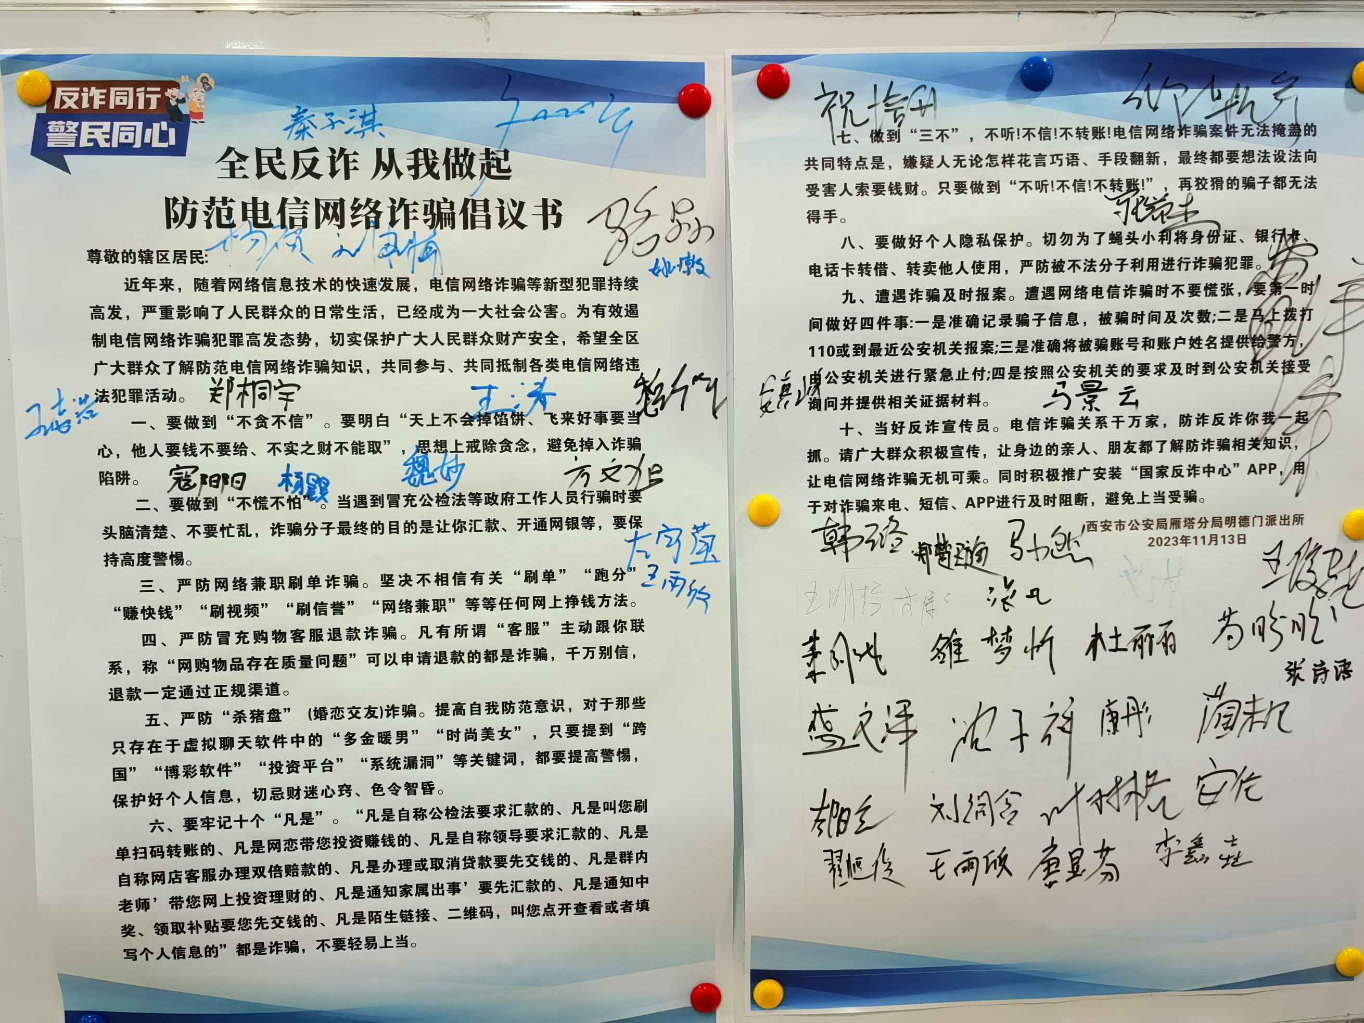 反诈同行
警民同心
秦子淇
全民反诈 从我做起
防范电信网络诈骗倡议书
尊敬的辖区居民:
近年来，随着网络信息技术的快速发展，电信网络诈骗等新型犯罪持续
高发，严重影响了人民群众的日常生活，已经成为一大社会公害。为有效遏
制电信网络诈骗犯罪高发态势，切实保护广大人民群众财产安全，希望全区
广大群众了解防范电信网络诈骗知识，共同参与、共同抵制各类电信网络违
法犯罪活动。
郑桐宇
一、要做到“不贪不信”。要明白“天上不会掉馅饼、飞来好事要当
心，他人要钱不要给、不实之财不能取”，思想上戒除贪念，避免掉入诈骗
陷阱。
寇阳阳
杨毅
魏妙
方文旭
二、要做到“不慌不怕”。当遇到冒充公检法等政府工作人员行骗时要
头脑清楚、不要忙乱，诈骗分子最终的目的是让你汇款、开通网银等，要保
持高度警惕。
王雨欣
三、严防网络兼职刷单诈骗。坚决不相信有关“刷单”“跑分”
“赚快钱”“刷视频”“刷信誉”“网络兼职”等等任何网上挣钱方法。
四、严防冒充购物客服退款诈骗。凡有所谓“客服”主动跟你联
系，称“网购物品存在质量问题”可以申请退款的都是诈骗，千万别信，
退款一定通过正规渠道。
五、严防“杀猪盘”(婚恋交友)诈骗。提高自我防范意识，对于那些
只存在于虚拟聊天软件中的“多金暖男”“时尚美女”，只要提到“跨
国”“博彩软件”“投资平台”“系统漏洞”等关键词，都要提高警惕，
保护好个人信息，切忌财迷心窍、色令智昏。
六、要牢记十个“凡是”。“凡是自称公检法要求汇款的、凡是叫您刷
单扫码转账的、凡是网恋带您投资赚钱的、凡是自称领导要求汇款的、凡是
自称网店客服办理双倍赔款的、凡是办理或取消贷款要先交钱的、凡是群内
老师’带您网上投资理财的、凡是通知家属出事’要先汇款的、凡是通知中
奖、领取补贴要您先交钱的、凡是陌生链接、二维码，叫您点开查看或者填
写个人信息的”都是诈骗，不要轻易上当。
七、做到“三不”，不听!不信!不转账!电信网络诈骗案件无法掩盖的
共同特点是，嫌疑人无论怎样花言巧语、手段翻新，最终都要想法设法向
受害人索要钱财。只要做到“不听!不信!不转账!”，再狡猾的骗子都无法
得手。
八、要做好个人隐私保护。切勿为了蝇头小利将身份证、银行卡、
电话卡转借、转卖他人使用，严防被不法分子利用进行诈骗犯罪。
九、遭遇诈骗及时报案。遭遇网络电信诈骗时不要慌张，要第一时
间做好四件事:一是准确记录骗子信息，被骗时间及次数;二是马上拨打
110或到最近公安机关报案;三是准确将被骗账号和账户姓名提供给警方，
由公安机关进行紧急止付;四是按照公安机关的要求及时到公安机关接受
询问并提供相关证据材料。
马景云
十、当好反诈宣传员。电信诈骗关系千万家，防诈反诈你我一起
抓。请广大群众积极宣传，让身边的亲人、朋友都了解防诈骗相关知识，
让电信网络诈骗无机可乘。同时积极推广安装“国家反诈中心”APP，用
于对诈骗来电、短信、APP进行及时阻断，避免上当受骗。
西安市公安局雁塔分局明德门派出所
2023年11月13日
雒梦忻
杜丽丽
张诗语
蓝文泽
沈子祥
康彤
王雨欣
唐显芬